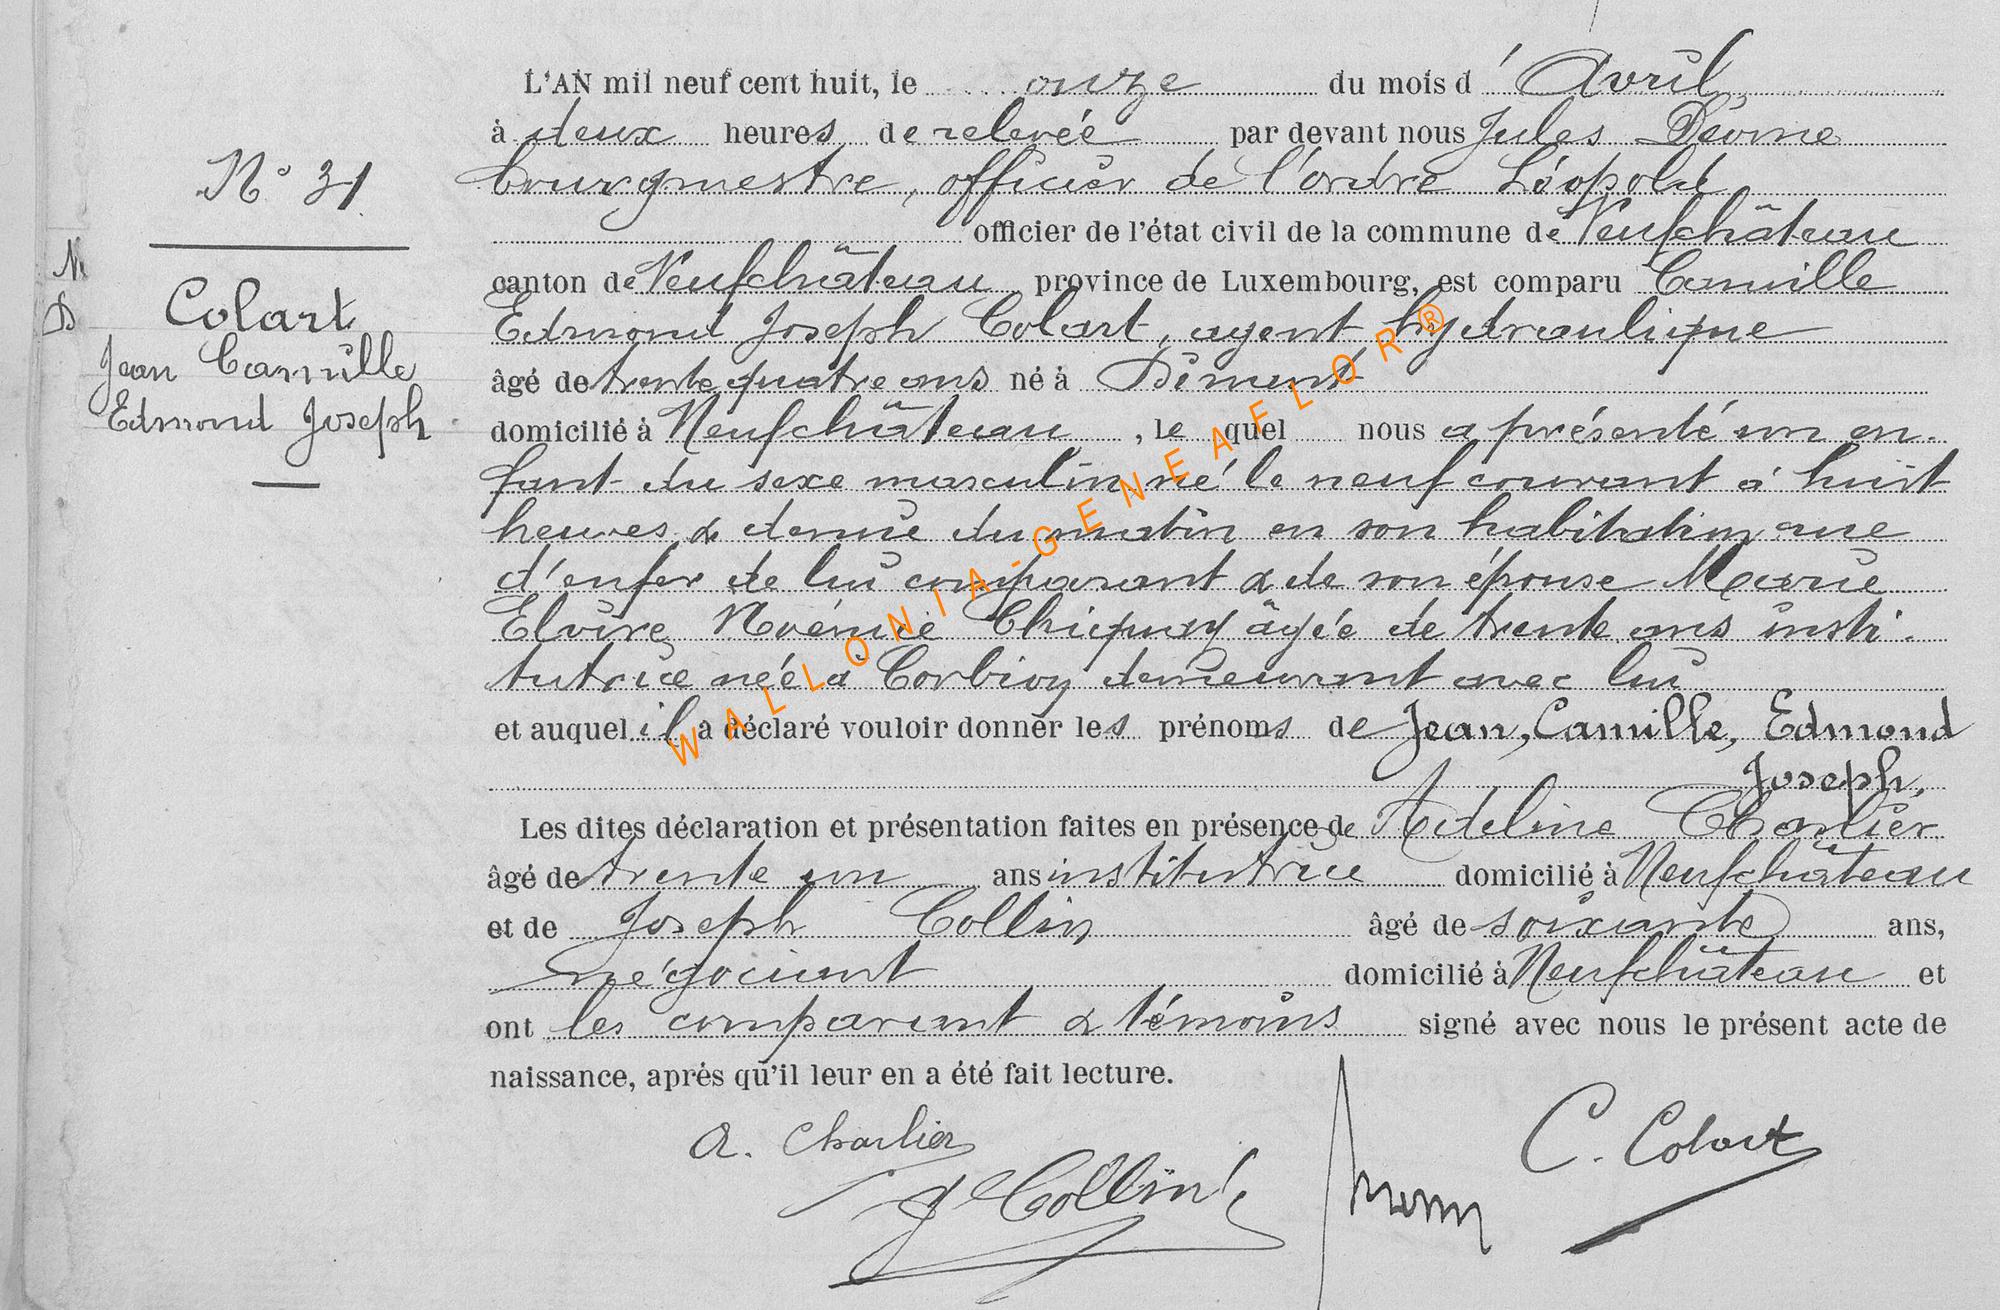 L'AN mil neuf cent huit, le onze du mois d' Avril,
à deux heures de relevée par devant nous Jules
bourgmestre, officier de l'ordre Léopold
officier de l'état civil de la commune de Neufchâteau
canton de Neufchâteau province de Luxembourg, est comparu Camille
Edmond Joseph Colart, agent hydraulique
âgé de trente quatre ans né à
domicilié à Neufchâteau, le quel nous a présenté un en-
fant du sexe masculin, né le neuf courant à huit
heures & demie du matin en son habitation rue
d'enfer de lui comparant & de son épouse Marie
Elvire Noémie âgée de trente ans insti-
tutrice née à demeurant avec lui
et auquel il a déclaré vouloir donner les prénoms de Jean, Camille, Edmond
Joseph,
Les dites déclaration et présentation faites en présence de Adeline Charlier
âgé de trente un ans institutrice domicilié à Neufchâteau
et de Joseph Collin âgé de soixante ans,
négociant domicilié à Neufchâteau et
ont les comparant & témoins signé avec nous le présent acte de
naissance, après qu'il leur en a été fait lecture.
N° 31
Colart
Jean Camille
Edmond Joseph
N
D
A. Charlier
J Collin
C. Colart
WALLONIA-GENEAFLOR®